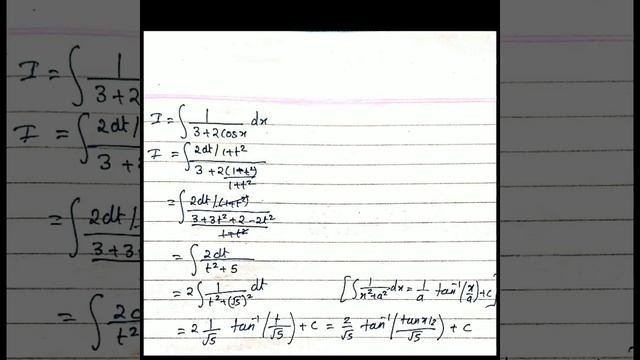 I = ∫ 1/(3+2cosx) dx
I = ∫ (2dt/1+t²)/(3+2(1-t²)/1+t²)
= ∫ (2dt/(1+t²))/((3+3t²+2-2t²)/1+t²)
= ∫ 2dt/(t²+5)
= 2∫ 1/(t²+(√5)²) dt [∫ 1/(x²+a²) dx = 1/a tan⁻¹(x/a)+c]
= 2 1/√5 tan⁻¹(t/√5) + c = 2/√5 tan⁻¹(tanx/2/√5) + c